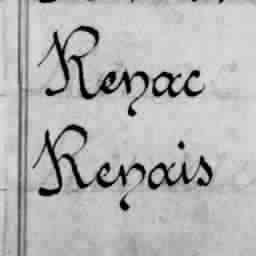 Reyac
Reyais